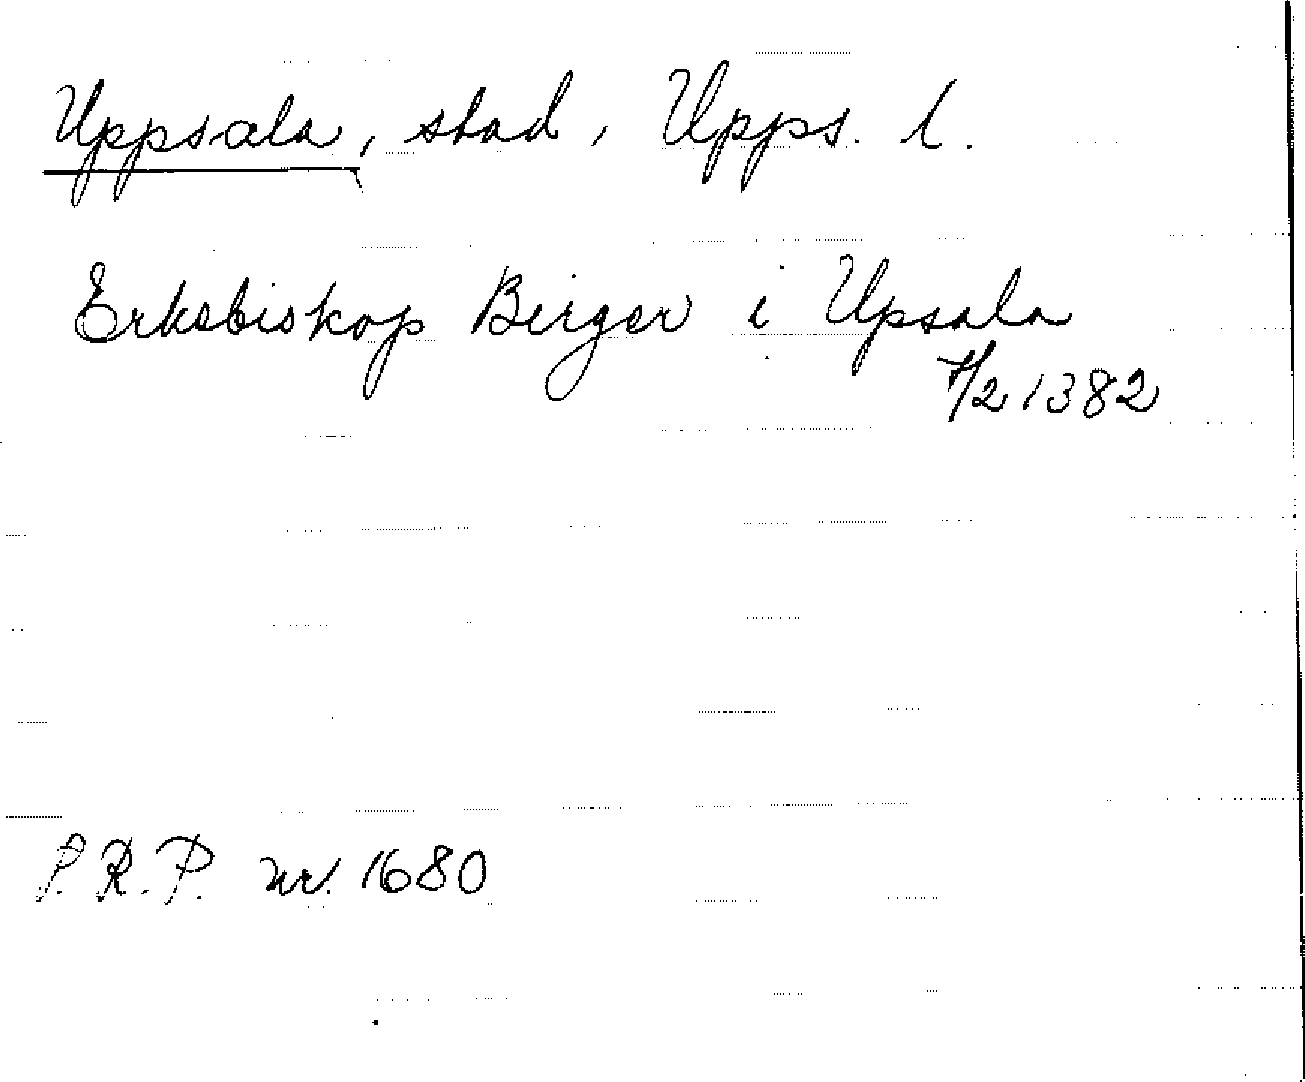 Uppsala, stad, Upps. l.
Erkebiskop Birger i Upsala
7/2 1382
P.R.P. nr. 1680